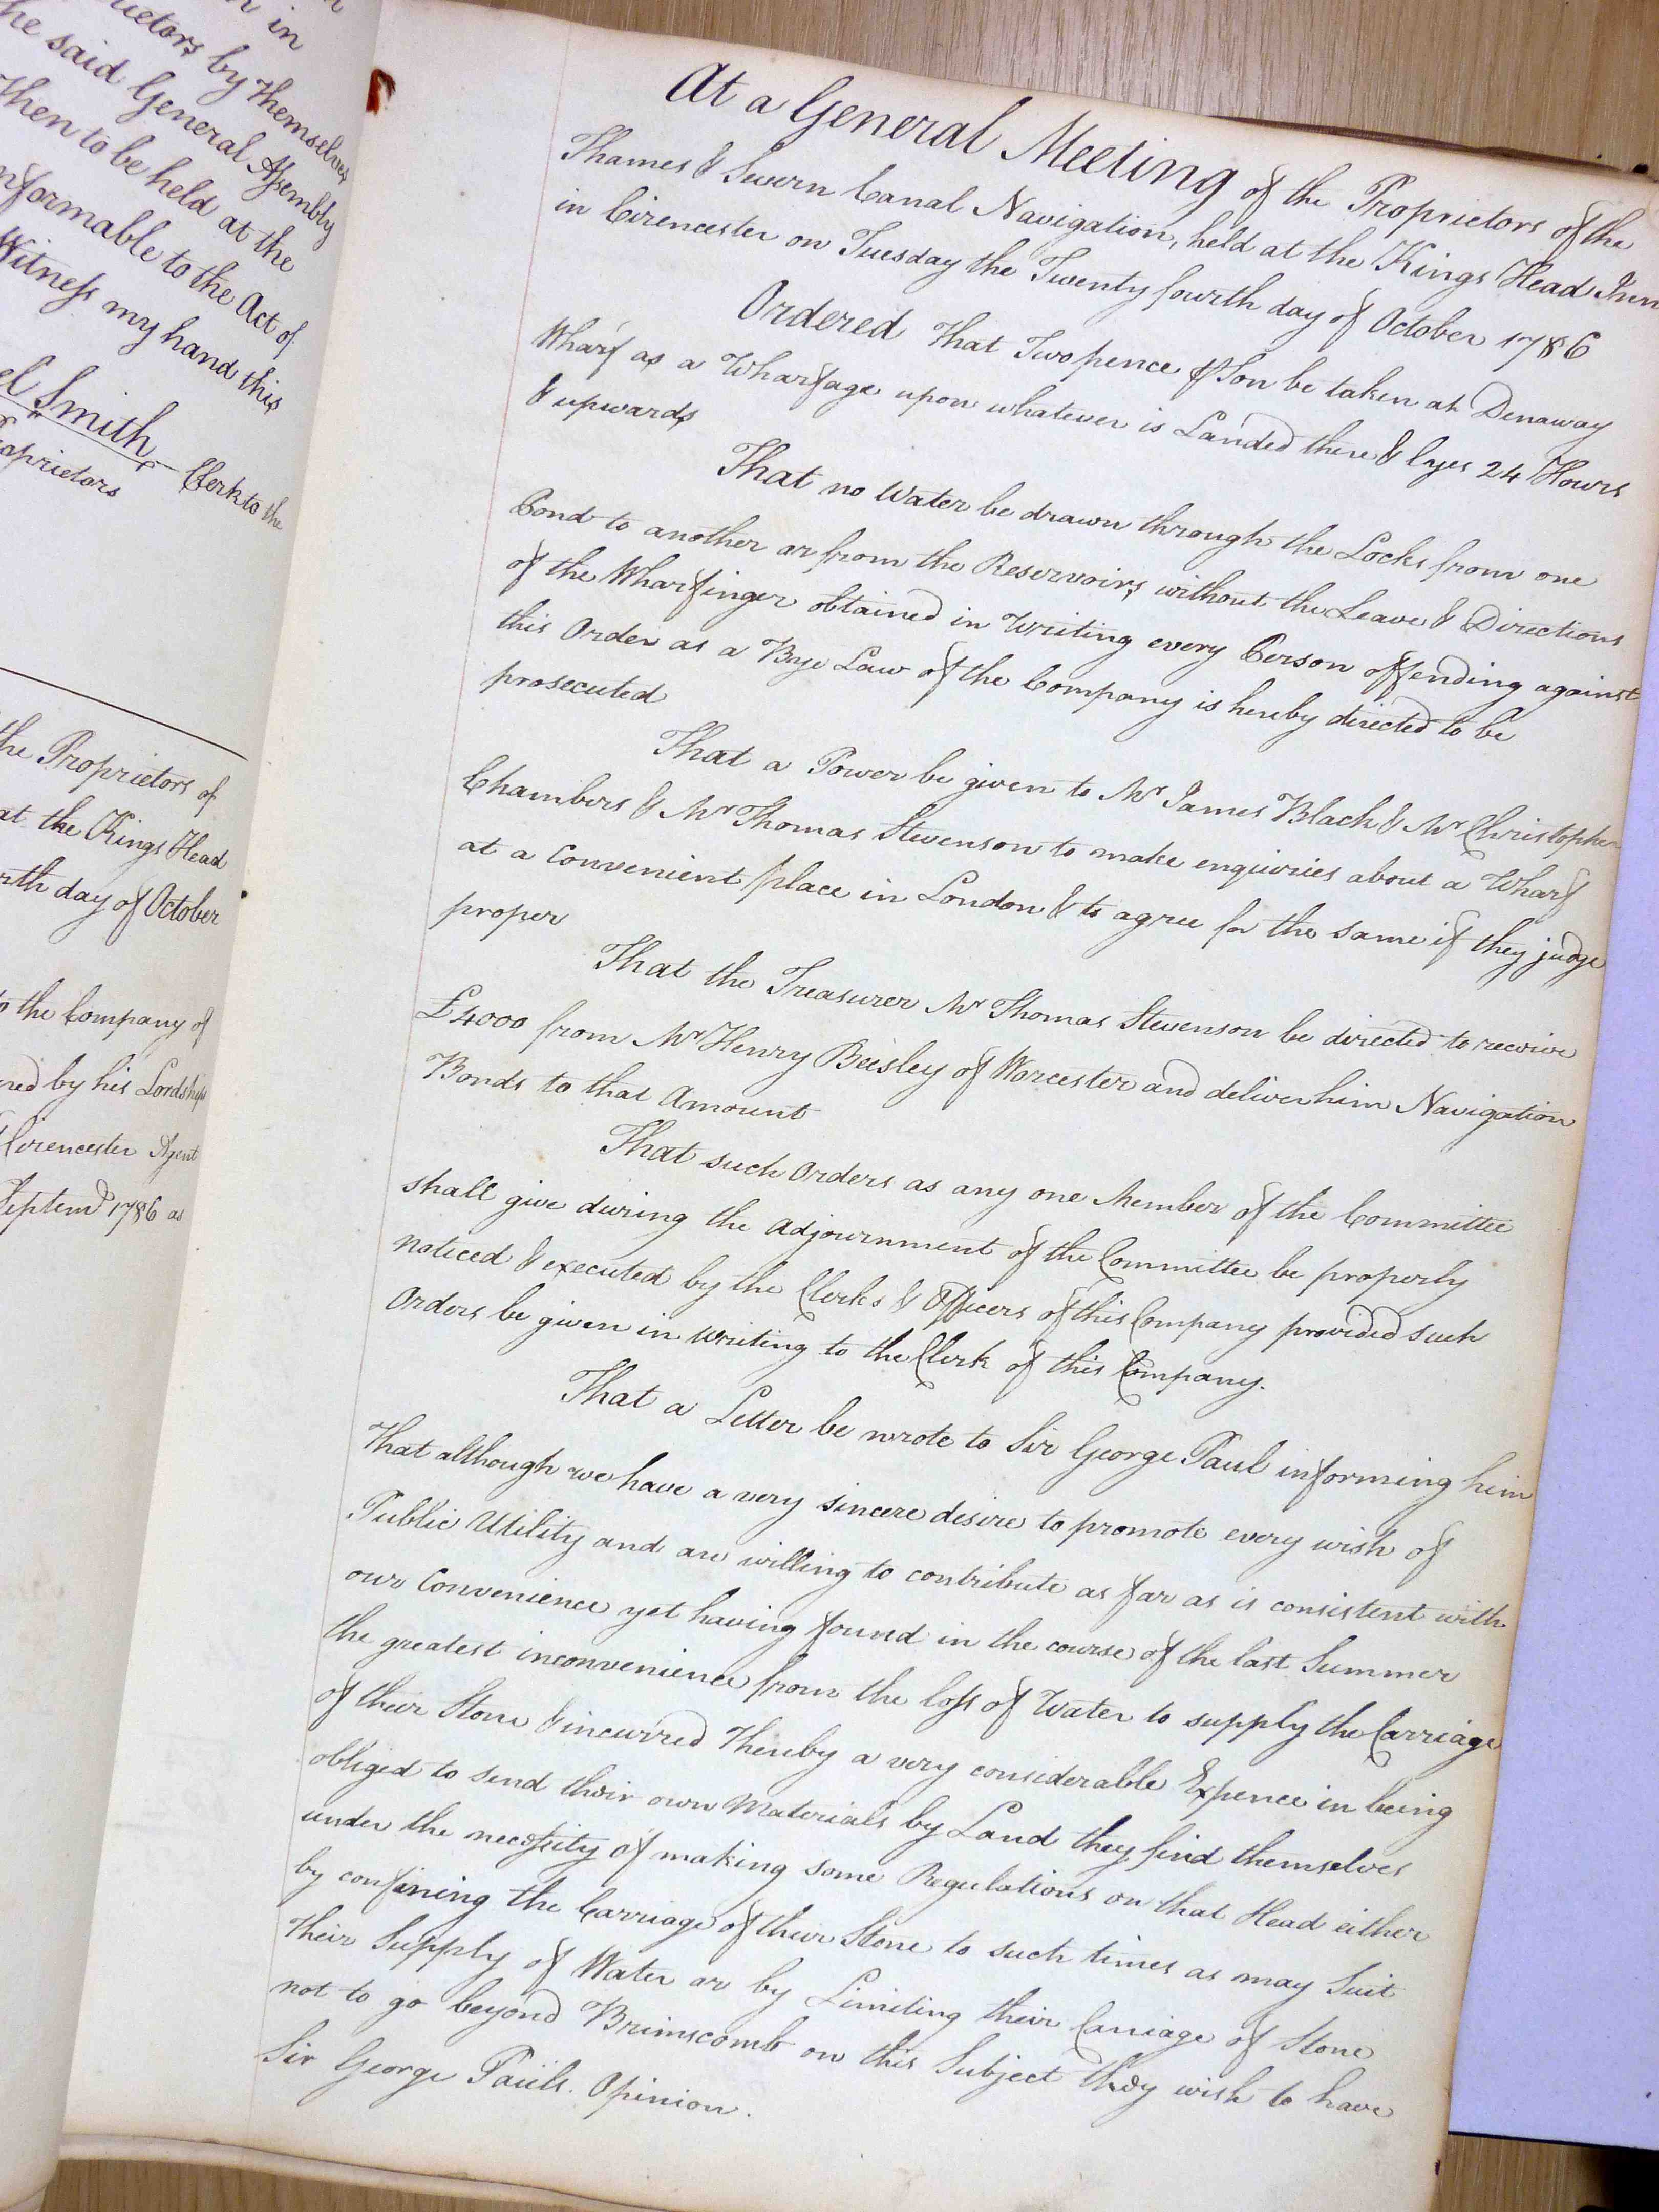 n in
ietors by themselves
he said General Assembly
then to be held at the
nformable to the Act of
Witness my hand this
el Smith Clerk to the
roprietors
the Proprietors of
at the Kings Head
rth day of October
o the Company of
ned by his Lordship
Cirencester Agent
Septemr 1786 as
At a General Meeting of the Proprietors of the
Thames & Severn Canal Navigation, held at the Kings Head Inn
in Cirencester on Tuesday the Twenty fourth day of October 1786
Ordered That Twopence ⅌ Ton be taken at Denaway
Wharf as a Wharfage upon whatever is Landed there & lyes 24 Hours
& upwards
That no Water be drawn through the Locks from one
Pond to another or from the Reservoirs without the Leave & Directions
of the Wharfinger obtained in Writing every Person offending against
this Order as a Bye Law of the Company is hereby directed to be
prosecuted
That a Power be given to Mr James Black & Mr Christopher
Chambers & Mr Thomas Stevenson to make enquiries about a Wharf
at a Convenient place in London & to agree for the same if they judge
proper
That the Treasurer Mr Thomas Stevenson be directed to receive
£4000 from Mr Henry Beesley of Worcester and deliver him Navigation
Bonds to that Amount
That such Orders as any one Member of the Committee
shall give during the Adjournment of the Committee be properly
noticed & executed by the Clerks & Officers of this Company provided such
Orders be given in Writing to the Clerk of this Company.
That a Letter be wrote to Sir George Paul informing him
that although we have a very sincere desire to promote every wish of
Public Utility and are willing to contribute as far as is consistent with
our Convenience yet having found in the course of the last Summer
the greatest inconvenience from the loss of Water to supply the Carriage
of their Stone & incurred thereby a very considerable Expence in being
obliged to send their own Materials by Land they find themselves
under the necessity of making some Regulations on that Head either
by confining the Carriage of their Stone to such times as may Suit
their Supply of Water or by Limiting their Carriage of Stone
not to go beyond Brimscomb on this Subject they wish to have
Sir George Pauls Opinion.